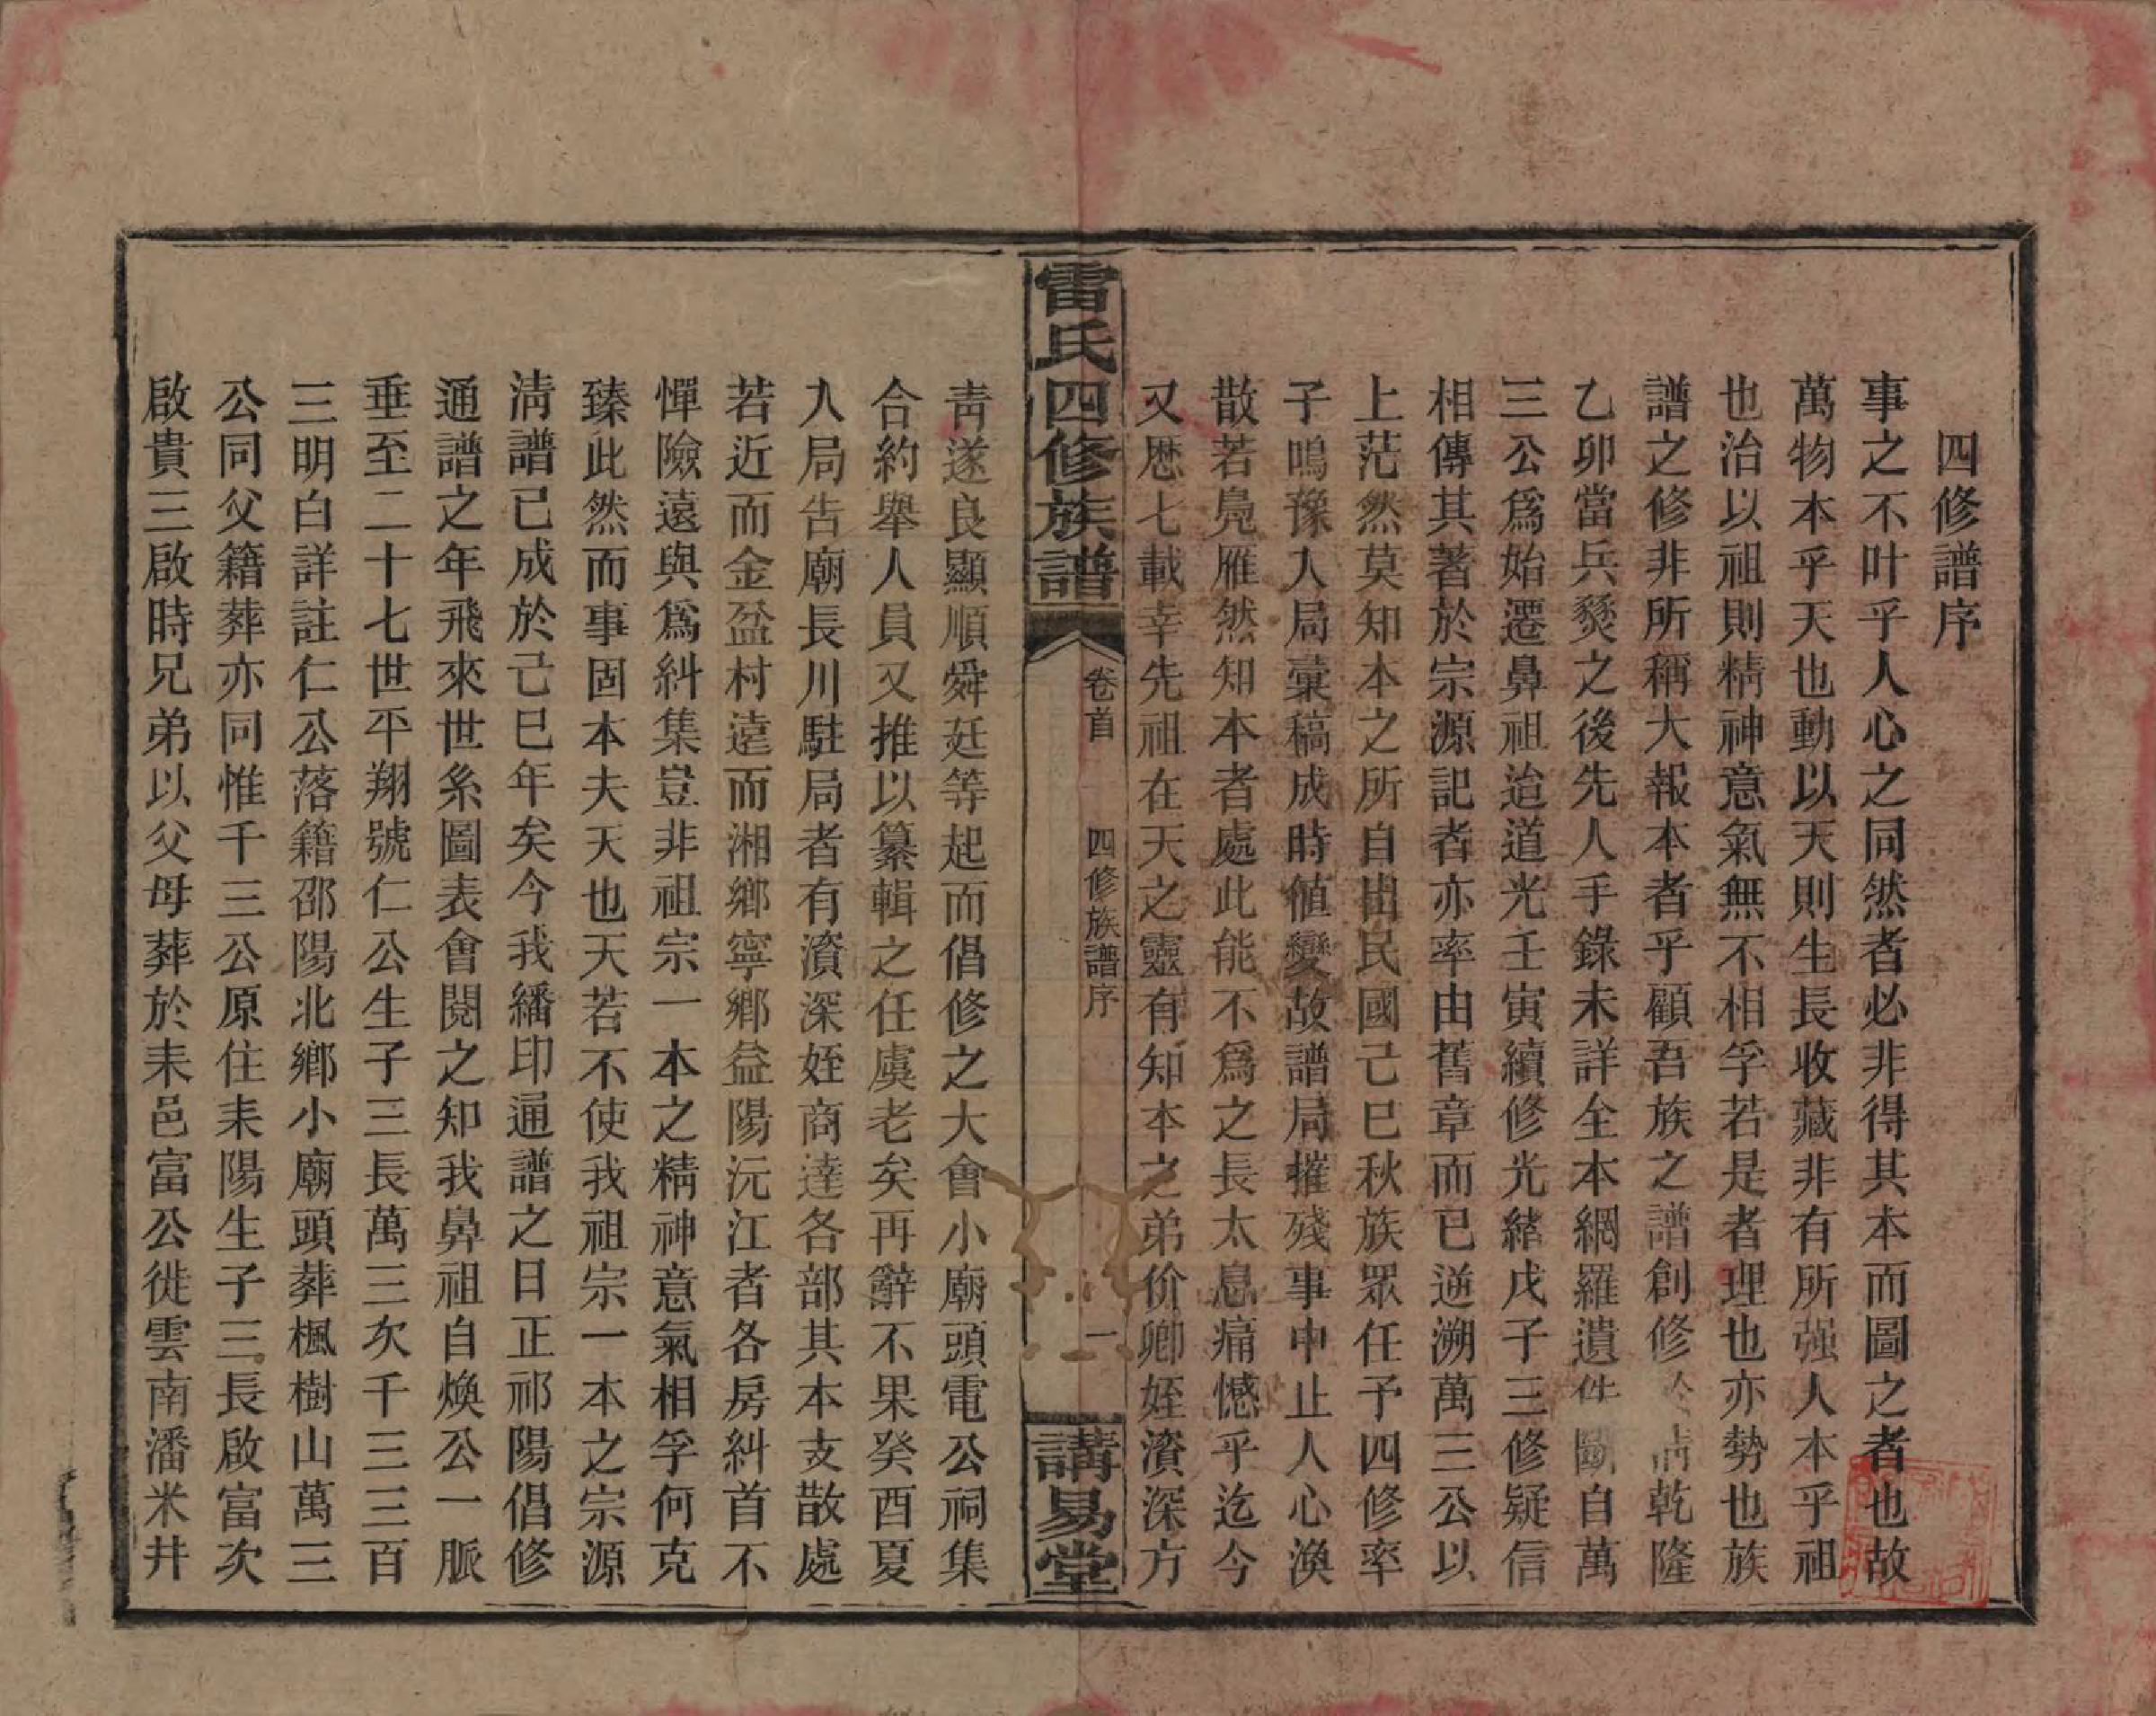 四修譜序
事之不叶乎人心之同然者必非得其本而圖之者也故
萬物本乎天也動以天則生長收藏非有所强人本乎祖
也治以祖則精神意氣無不相孚若是者理也亦勢也族
譜之修非所稱大報本者乎顧吾族之譜創修乾隆
乙卯當兵燹之後先人手錄未詳全本網羅遺佚斷自萬
三公爲始遷鼻祖迨道光壬寅續修光緒戊子三修疑信
相傳其著於宗源記者亦率由舊章而已逆溯萬三公以
上茫然莫知本之所自出民國己巳秋族眾任予四修率
子鳴豫入局彙稿成時値變故譜局摧殘事中止人心渙
散若鳧雁然知本者處此能不爲之長太息痛憾乎迄今
又歷七載幸先祖在天之靈有知本之弟价卿姪濱深方
雷氏四修族譜
卷首
四修族譜序
一
講易堂
靑遂良顯順舜廷等起而倡修之大會小廟頭電公祠集
合約舉人員又推以纂輯之任虞老矣再辭不果癸酉夏
入局吿廟長川駐局者有濱深姪商達各部其本支散處
若近而金盆村遠而湘鄉寧鄉益陽沅江者各房糾首不
憚險遠與爲糾集豈非祖宗一本之精神意氣相孚何克
臻此然而事固本夫天也天若不使我祖宗一本之宗源
淸譜已成於己巳年矣今我繙印通譜之日正祁陽倡修
通譜之年飛來世系圖表會閱之知我鼻祖自煥公一脈
垂至二十七世平翔號仁公生子三長萬三次千三三百
三明白詳註仁公落籍邵陽北鄉小廟頭葬楓樹山萬三
公同父籍葬亦同惟千三公原住耒陽生子三長啟富次
啟貴三啟時兄弟以父母葬於耒邑富公徙雲南潘米井